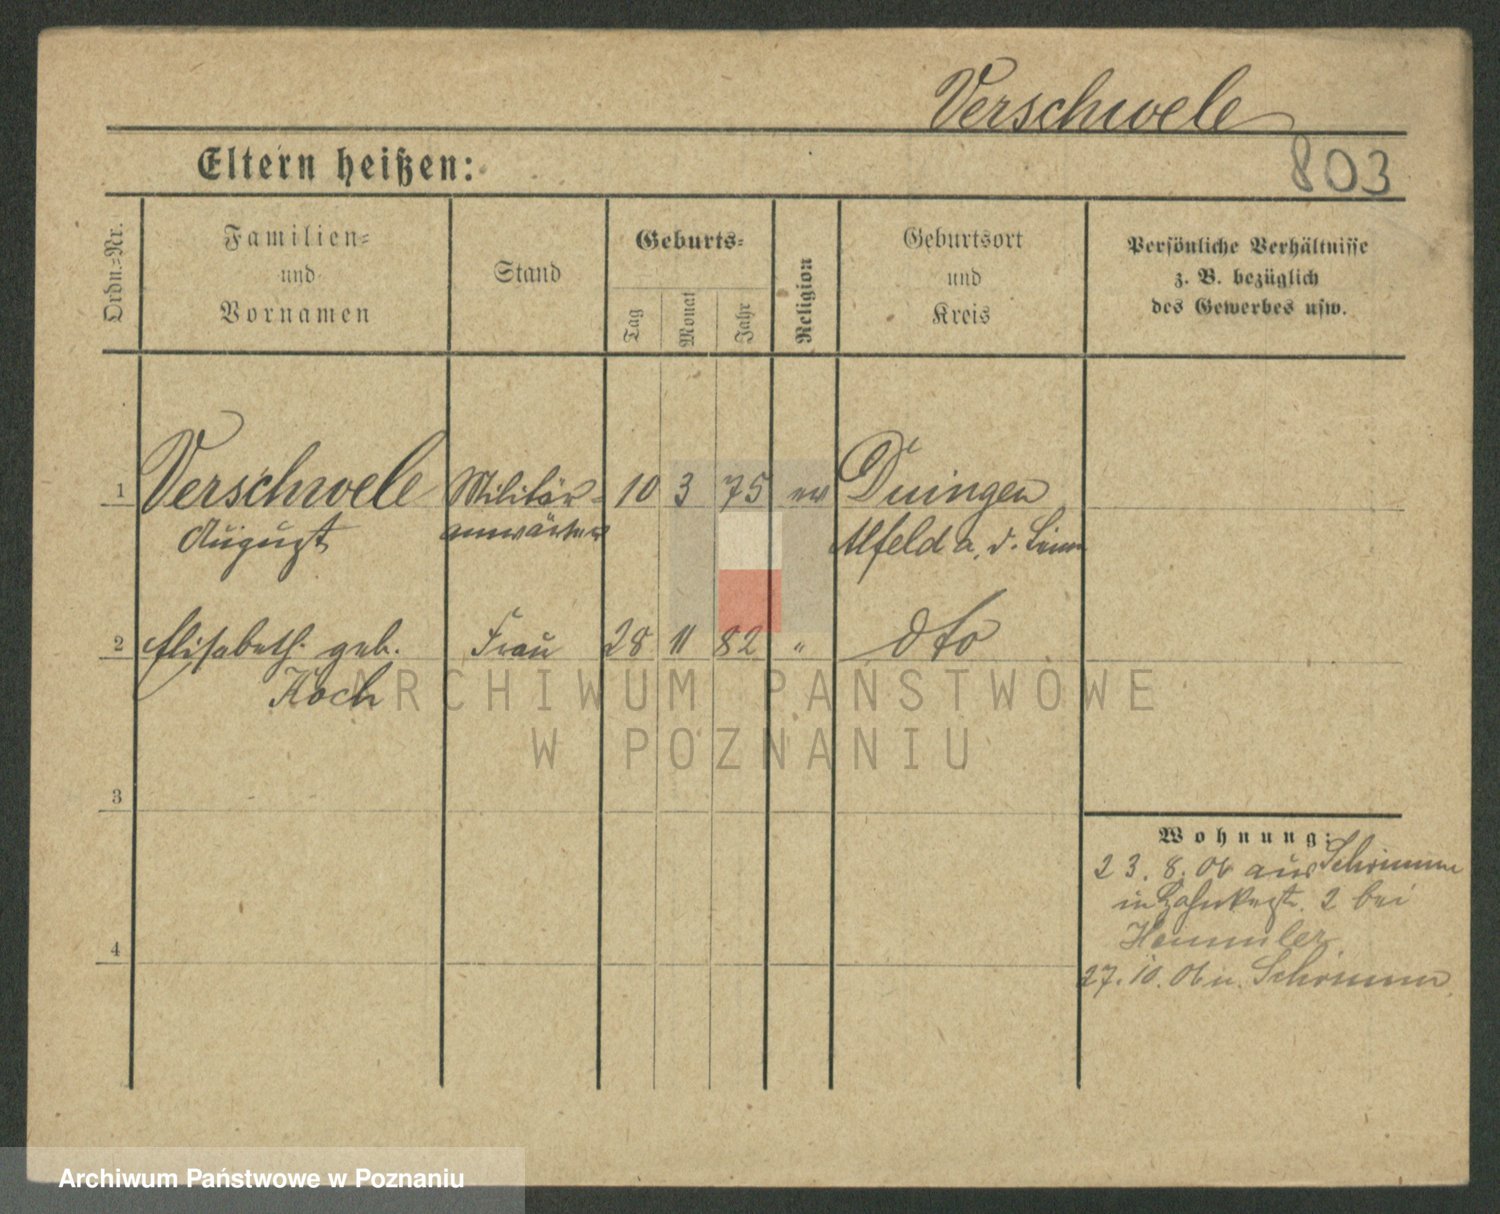 Verschwele
Eltern heißen:
803
Ordn.=Nr.
Familien=
und
Vornamen
Stand
Geburts=
Tag
Monat
Jahr
Religion
Geburtsort
und
Kreis
Persönliche Verhältnisse
z. B. bezüglich
des Gewerbes usw.
1 Verschwele Militär= 10 3 75 ev Duingen
August anwärter Alfeld a. d. Leine
2 Elisabeth geb. Frau 28 11 82 " dto
Koch
ARCHIWUM PAŃSTWOWE
W POZNANIU
3
Wohnung:
23. 8. 06 aus Schrimm
in 2 bei
4
27. 10. 06 n. Schrimm
Archiwum Państwowe w Poznaniu